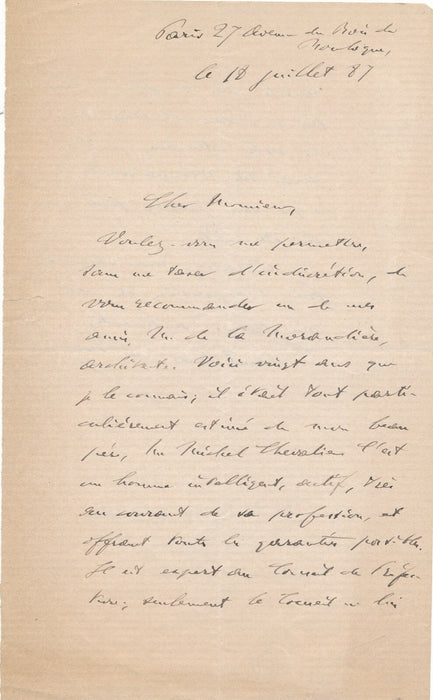 Paris 27 Avenue du Bois de
Boulogne,
le 18 juillet 87
Cher Monsieur,
Voulez-vous me permettre,
sans me taxer d'indiscrétion, de
vous recommander un de mes
amis, M. de la Morandière,
architecte. Voici vingt ans que
je le connais; il était tout parti-
culièrement estimé de mon beau
père, M. Michel Chevalier. C'est
un homme intelligent, actif, très
au courant de sa profession, et
offrant toutes les garanties possibles.
Il est expert au Conseil de Préfec-
ture; seulement le Conseil n